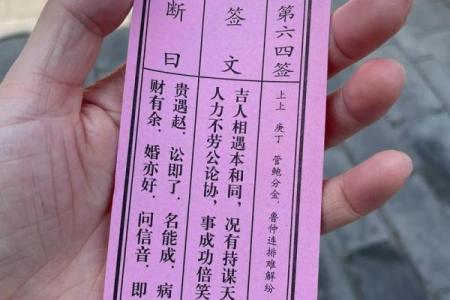 第六四签
上上 庚丁 管鲍分金．鲁仲连排难解纷
签文
吉人相遇本和同，况有持谋天
人力不劳公论协，事成功倍笑
断曰
贵遇赵．讼即了．名能成．病
财有余．婚亦好．问信音．即